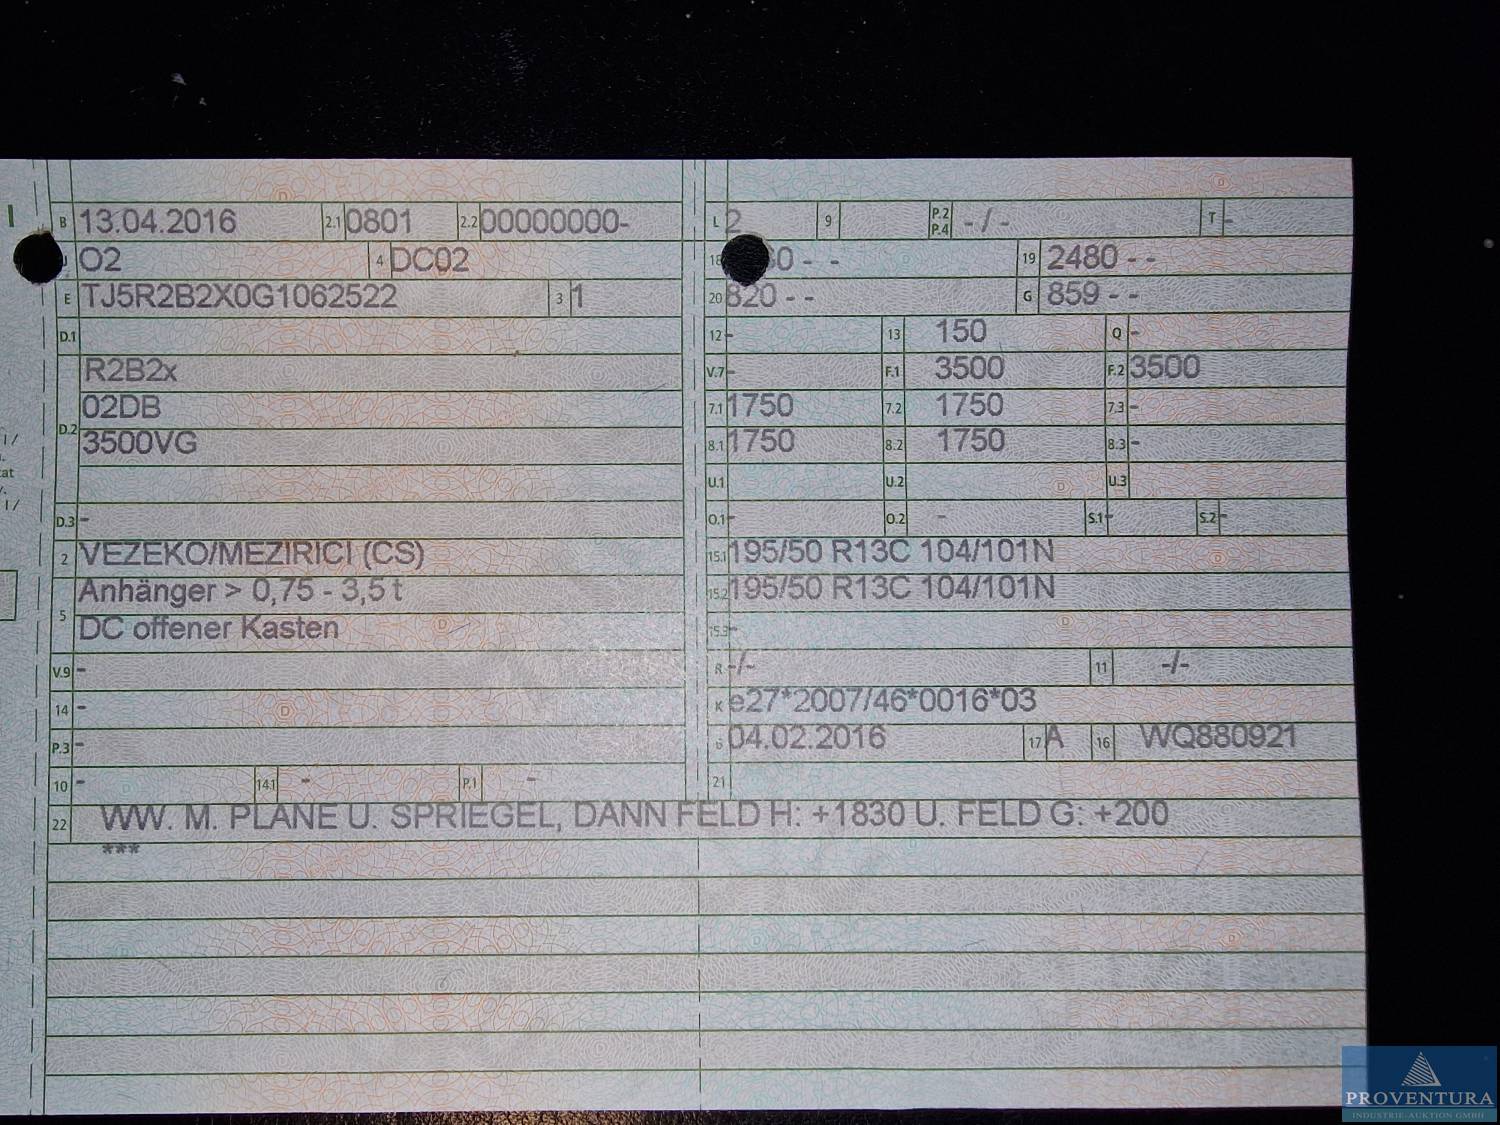 B 13.04.2016 2.1 0801 2.2 00000000-
J O2 4 DC02
E TJ5R2B2X0G1062522 3 1
D.1
R2B2x
02DB
D.2
3500VG
D.3 -
2 VEZEKO/MEZIRICI (CS)
Anhänger > 0,75 - 3,5 t
5
DC offener Kasten
V.9 -
14 -
P.3 -
10 - 14.1 - P.1 -
L 2 9 P.2 P.4 - / - T -
18 - - 19 2480 - -
20 820 - - G 859 - -
12 - 13 150 Q -
V.7 - F.1 3500 F.2 3500
7.1 1750 7.2 1750 7.3 -
8.1 1750 8.2 1750 8.3 -
U.1 U.2 U.3
O.1 - O.2 - S.1 - S.2 -
15.1 195/50 R13C 104/101N
15.2 195/50 R13C 104/101N
15.3 -
R -/- 11 -/-
K e27*2007/46*0016*03
6 04.02.2016 17 A 16 WQ880921
21
22 WW. M. PLANE U. SPRIEGEL, DANN FELD H: +1830 U. FELD G: +200
***
PROVENTURA
INDUSTRIE-AUKTION GMBH